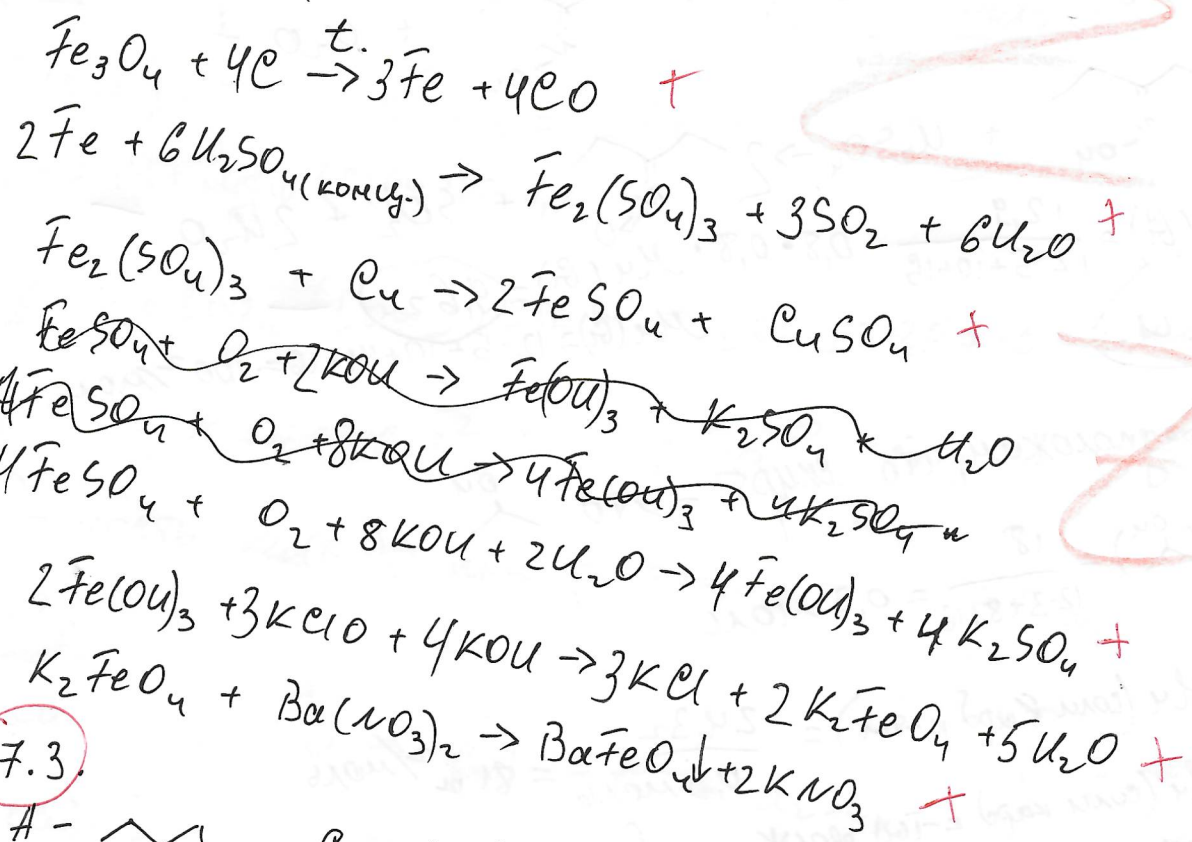 Fe₃O₄ + 4C →t. 3Fe + 4CO +
2Fe + 6H₂SO₄(конц.) → Fe₂(SO₄)₃ + 3SO₂ + 6H₂O +
Fe₂(SO₄)₃ + Cu → 2FeSO₄ + CuSO₄ +
FeSO₄ + O₂ + 2KOH → Fe(OH)₃ + K₂SO₄ + H₂O
4FeSO₄ + O₂ + 8KOH → 4Fe(OH)₃ + 4K₂SO₄
4FeSO₄ + O₂ + 8KOH + 2H₂O → 4Fe(OH)₃ + 4K₂SO₄ +
2Fe(OH)₃ + 3KClO + 4KOH → 3KCl + 2K₂FeO₄ + 5H₂O +
K₂FeO₄ + Ba(NO₃)₂ → BaFeO₄↓ + 2KNO₃ +
7.3.
A –